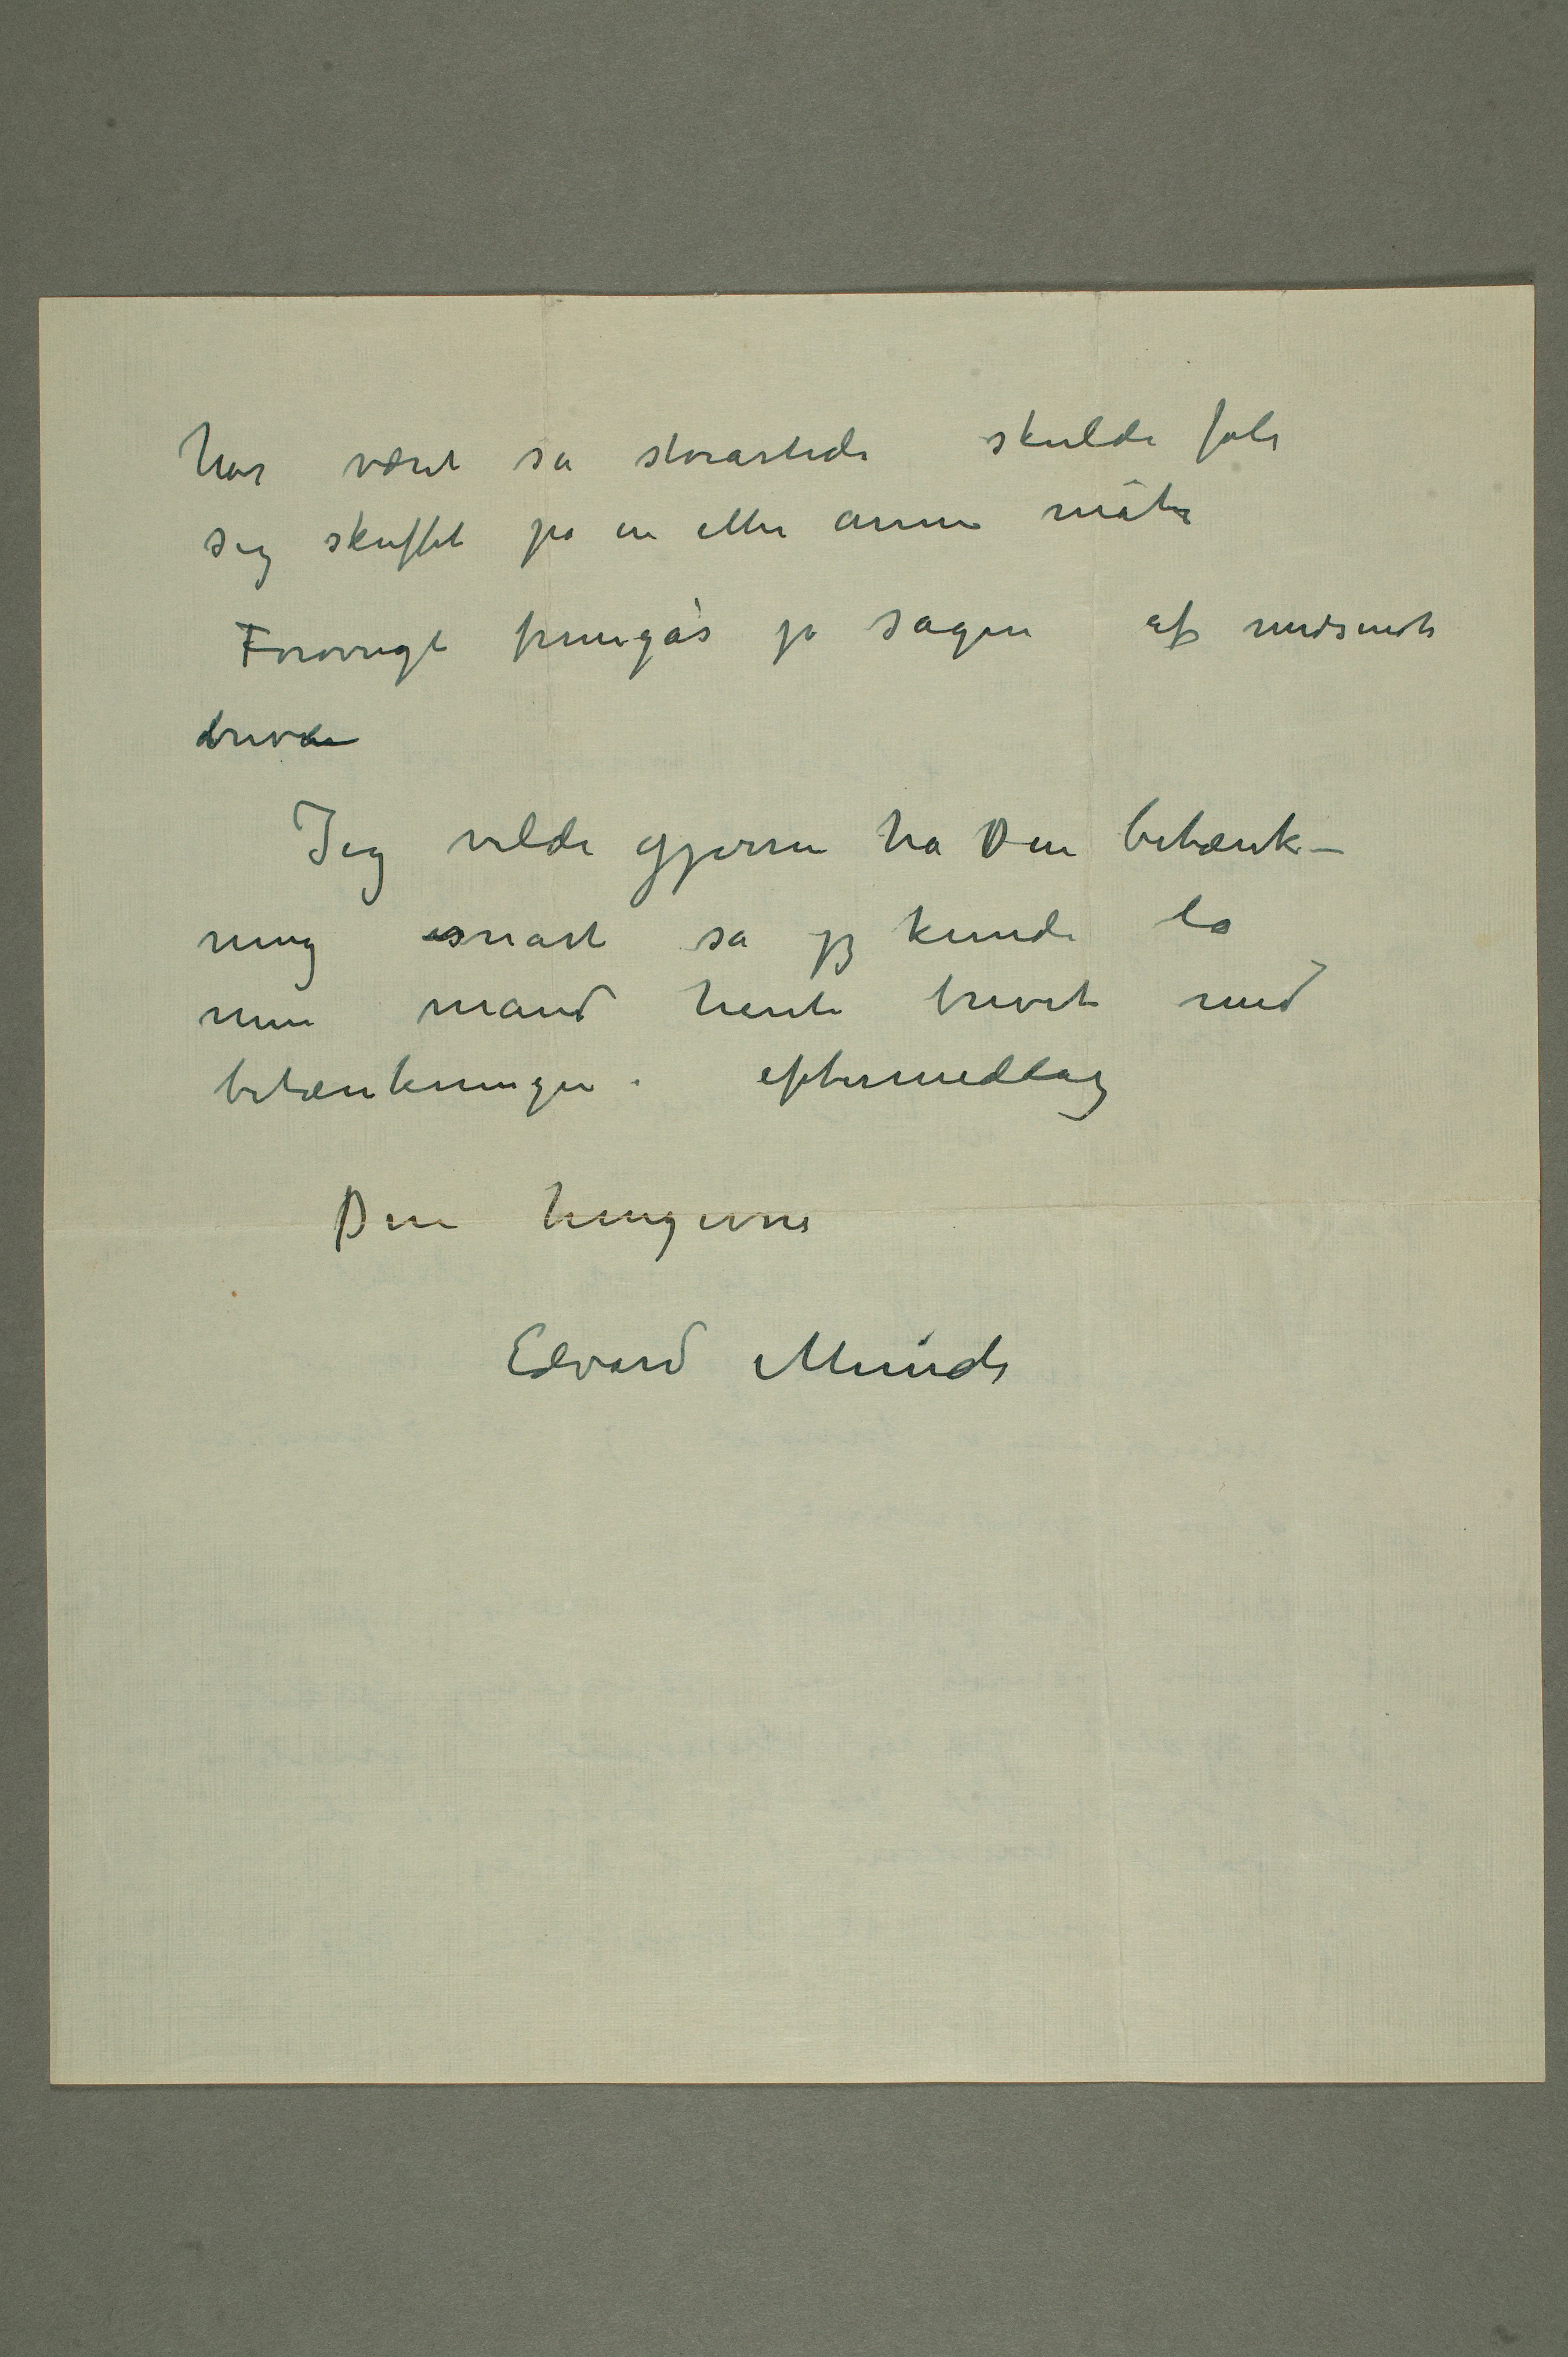 har været så storartede skulde føle
sig skuffet på en eller annen måte
Forøvrigt fremgås jo sagen af medsendte
breve
Jeg vilde gjerne ha Din betænk-
ning snart så jeg kunde la
min mand hente brevet med
betænkningen. eftermeddag
Din hengivne
Edvard Munch